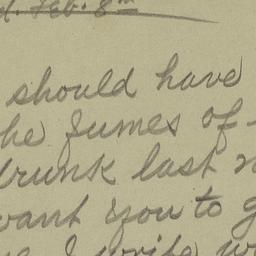 d. Feb. 8th
should have
he fumes of
drunk last n
want you to g
I write w